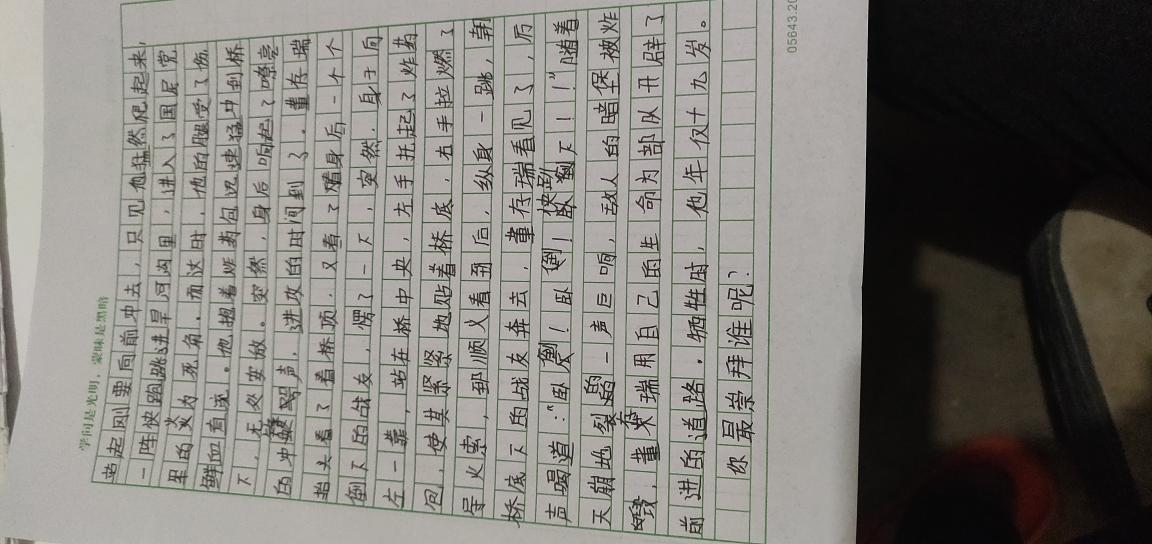 学问是光明，蒙昧是黑暗
抬起刚要向前冲去，只见他猛然爬起来，
一阵快跑跳进旱河沟里，进入了国民党
里的火力死角。而这时，他的腿受了伤，
鲜血直流。他抱着炸药包迅速猛冲到桥
下，无处安放。突然，身后响起了嘹亮
的冲锋号声，进攻的时间到了。董存瑞
抬头看了看桥顶，又看了随身后一个个
倒下的战友，愣了一下，突然，身子向
左一靠，站在桥中央，左手托起了炸药
包，使其紧紧地贴着桥底，右手拉燃了
导火索，郅顺义看到后，纵身一跳，朝
桥底下的战友奔去，董存瑞看见了，厉
声喝道：“卧倒！卧倒！快卧倒下！！”随着
天崩地裂的一声巨响，敌人的暗堡被炸
毁，董存瑞用自己的生命为部队开辟了
前进的道路。牺牲时，他年仅十九岁。
你最崇拜谁呢？
05643.20